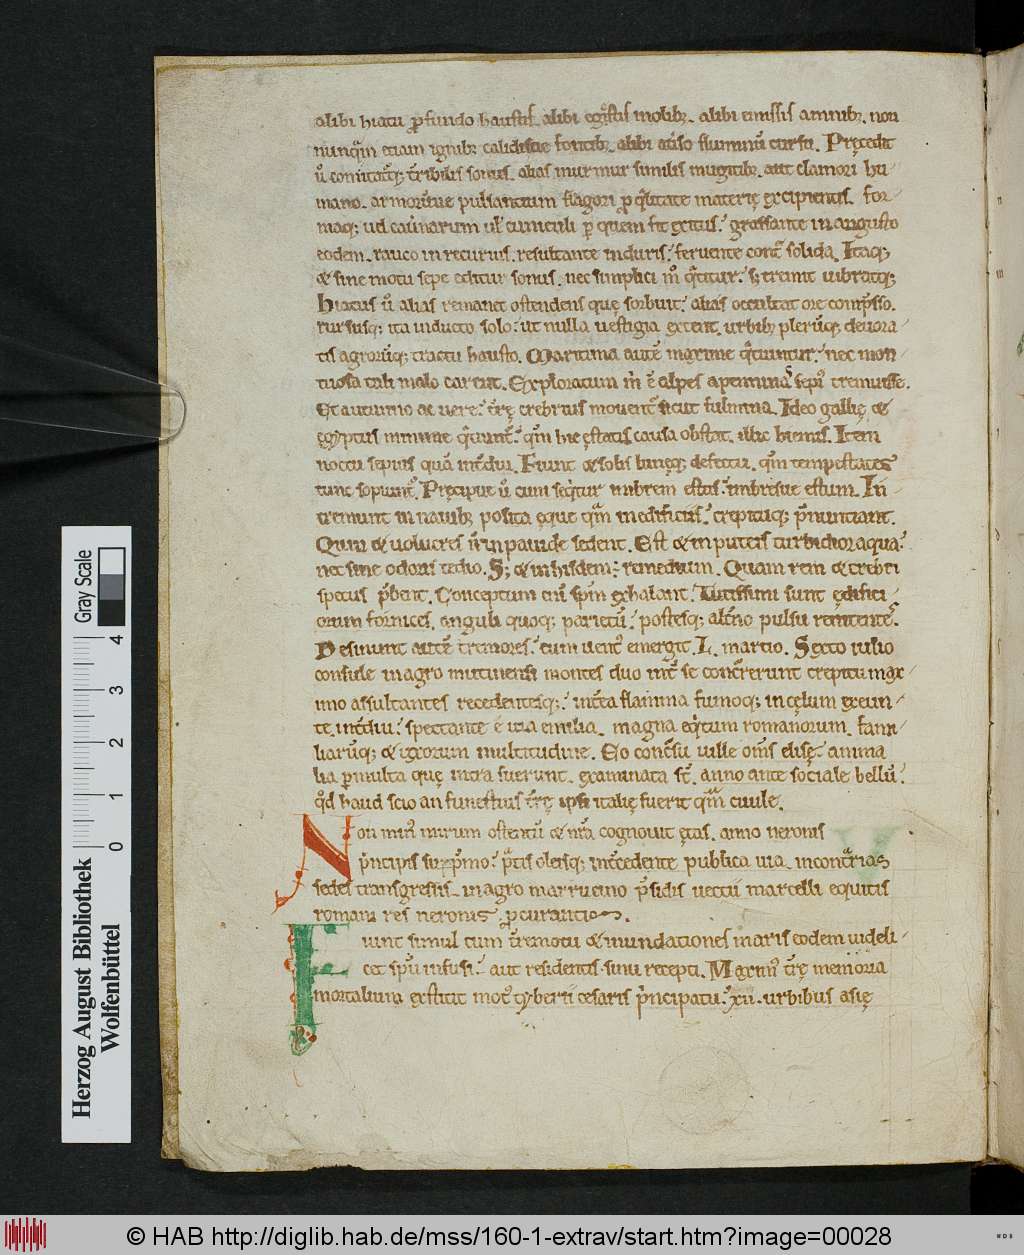 alibi hiatu ꝓfundo haustis. alibi egestis molibꝫ. alibi emissis amnibꝫ. non
nunqͣm etiam ignibꝫ calidisue fontibꝫ. alibi aũso fluminũ cursu. Pręcedit
ũ comitatq; tͬribilis sonus. alias murmur similis mugitibꝫ. aut clamori hu-
mano. armorũue pulsantium fragori ꝓ qͣlitate materię excipientis. for-
maq; uel cauͬnarum uł cuniculi ꝑ quem fit exitus. grassante in angusto
eodem. rauco in recuruis. resultante in duris. feruente contͣ solida. Itaq;
& sine motu sepe editur sonus. nec simplici m̊ qͣtitur. sꝫ tremit uibratq;
Hiatus ũ alias remanet ostendens quę sorbuit. alias occultat ore comp̃sso.
rursusq; ita inducto solo. ut nulla uestigia extent. urbibꝫ plerũq; deuora-
tis agrorũq; tractu hausto. Maritima autẽ maxime qͣtiuntur. nec mon-
tuosa tali malo carent. Exploratum m̊ ẽ alpes apenninũq; sepiꝰ tremuisse.
Et autumno ac uere. tͬrę crebrius mouentᷣ sicut fulmina. Ideo gallię &
ęgyptus minime qͣtiuntᷣ. qm̃ hic ęstatis causa obstat. illic hiemis. Item
noctu sepius quã intͬdiu. Fiunt & solis lunęq; defectu. qm̃ tempestates
tunc sopiuntᷣ. Pręcipue ũ cum seqͥtur imbrem estus. imbresue estum. In-
tremunt in nauibꝫ posita ęque qͣm in edificiis. crepituq; p̃nuntiant.
Quin & uolucres ñ inpauide sedent. Est & in puteis turbidior aqua.
nec sine odoris tedio. Sꝫ & in hisdem: remedium. Quam rem & crebri
specus p̃bent. Conceptum enĩ spm̃ exhalant. Tutissimi sunt ędifici-
orum fornices. anguli quoq; parietũ. postesq; altͬno pulsu renitentes.
Desinunt autẽ tremores. cum uentꝰ emergit. L. martio. Sexto iulio
consule in agro mutinensi montes duo intͬ se concͬrerunt crepitu max-
imo assultantes recedentesq;. intͬea flamma fumoq; in cęlum exeun-
te. intͬdiu. spectante ẽ uia emilia. magna eqͥtum romanorum. fami-
liarũq; & uiatorum multitudine. Eo concͬsu uille om̃s elisę. anima-
lia ꝑmulta quę intra fuerunt. exanimata st̃. anno ante sociale bellũ.
qd̃ haud scio an funestius tͬrę ipsi italię fuerit qͣm ciuile.
Non minꝰ mirum ostentũ & nr̃a cognouit ętas. anno neronis
pͥncipis suppͬmo. pͣtis oleisq; intͬcedente publica uia. in contͣrias
sedes transgressis. in agro marrucino p̃sidis uectii marcelli equitis
romani res neronis ꝓcurantis.
Fiunt simul cum tͬremotu & inundationes maris eodem uideli-
cet spũ infusi. aut residentis sinu recepti. Maximꝰ tͬrę memoria
mortalium exstitit motꝰ tyberii cesaris pͥncipatu. xii. urbibus asię
Herzog August Bibliothek
Wolfenbüttel
0 1 2 3 4 Gray Scale
© HAB http://diglib.hab.de/mss/160-1-extrav/start.htm?image=00028